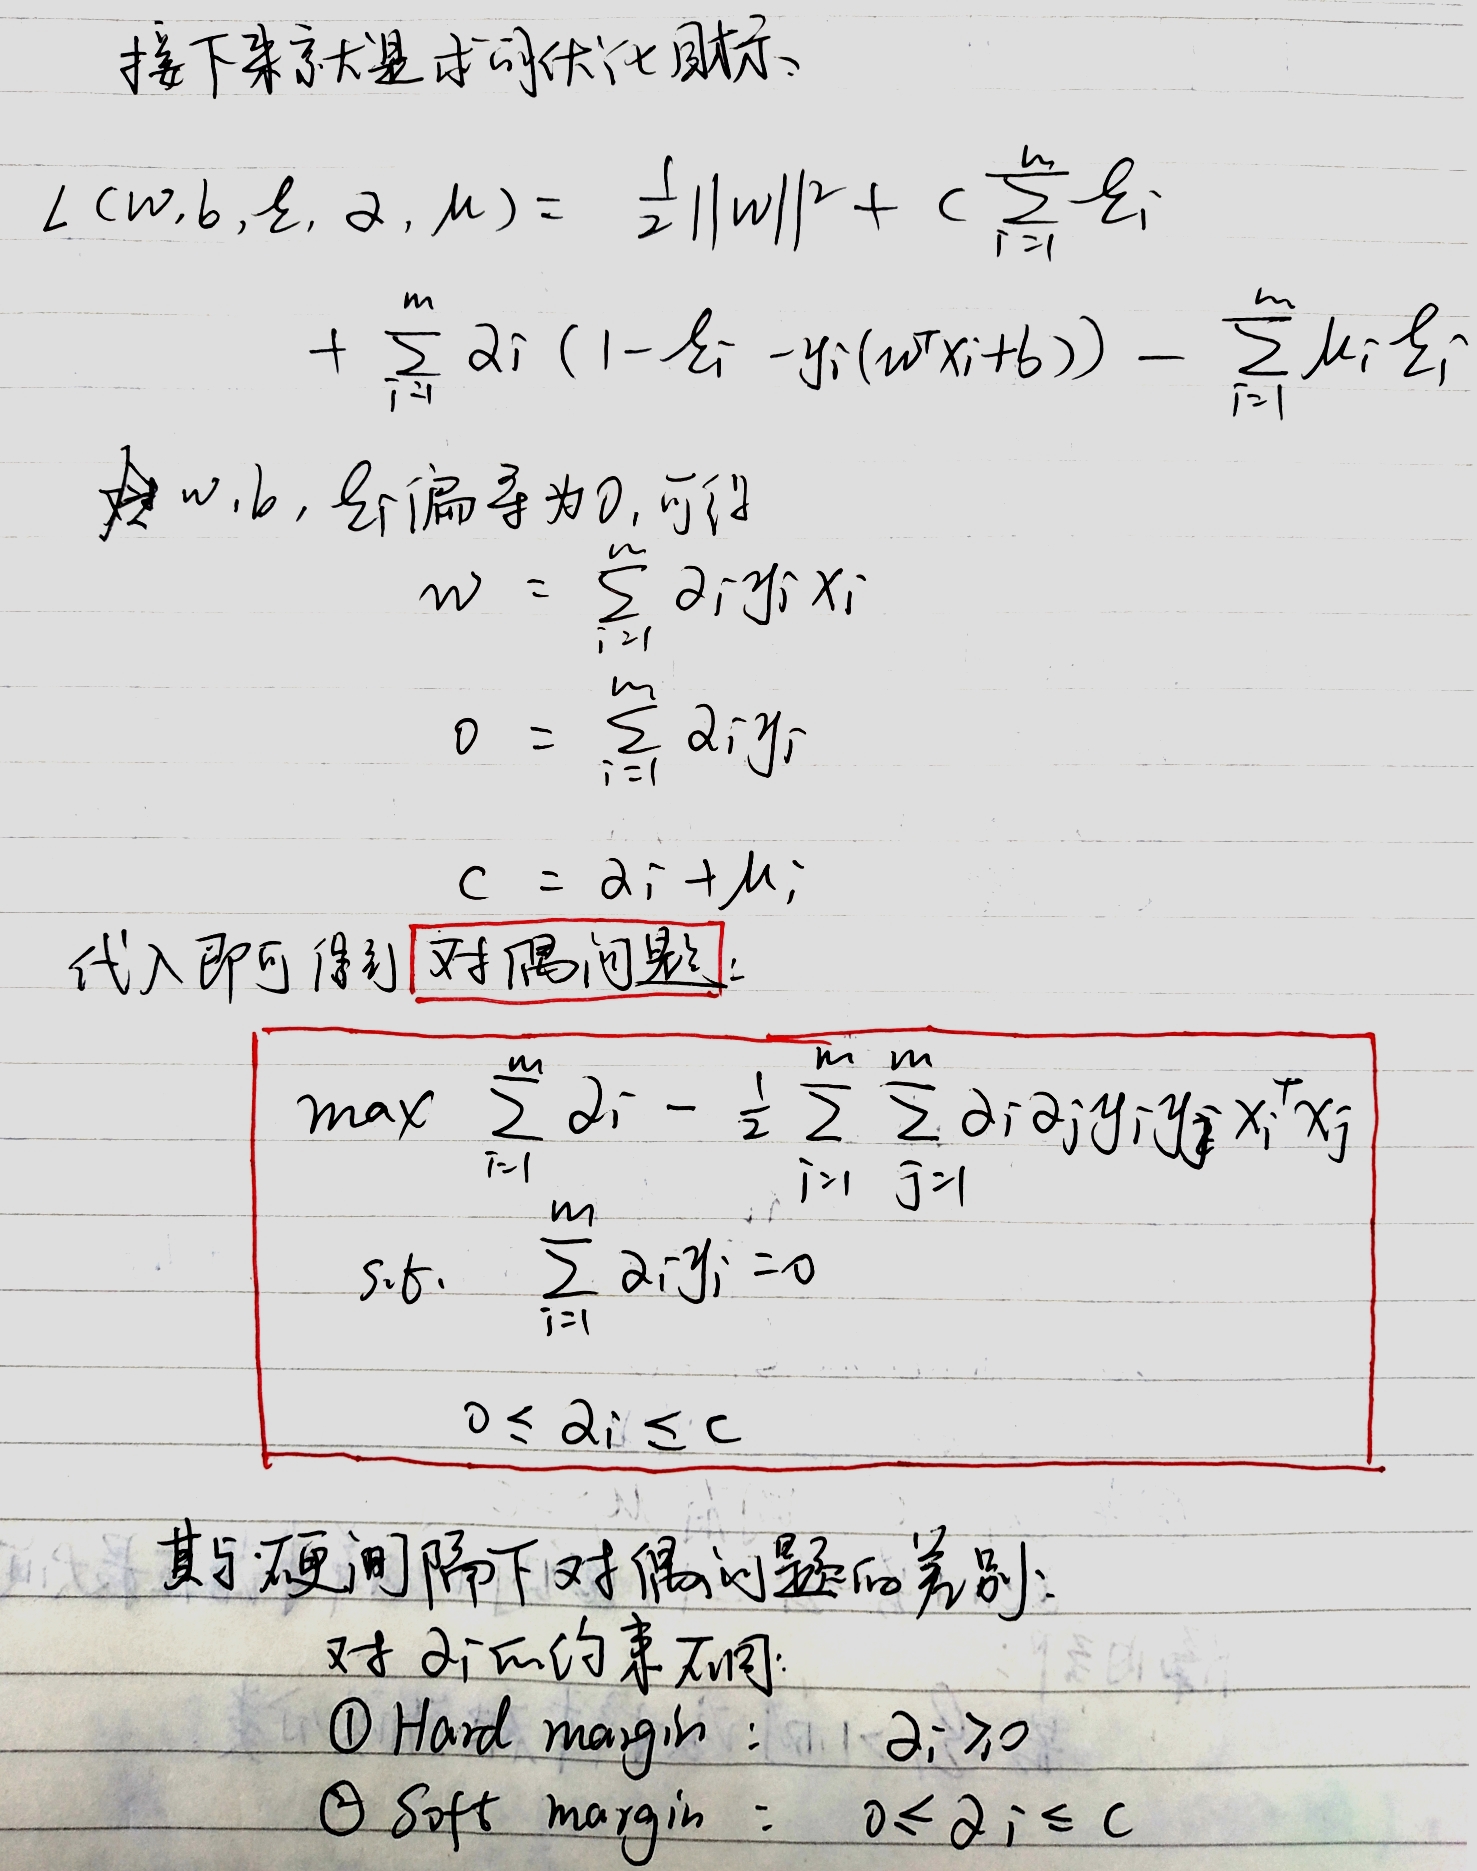 接下来就是求的优化目标、
L(w,b,ξ,α,μ) = 1/2||w||² + C∑_{i=1}^{m} ξi
+ ∑_{i=1}^{m} αi (1-ξi -yi(wᵀxi+b)) - ∑_{i=1}^{m} μi ξi
w,b,ξi偏导为0,可得
w = ∑_{i=1}^{m} αi yi xi
0 = ∑_{i=1}^{m} αi yi
C = αi + μi
代入即可得到对偶问题:
max ∑_{i=1}^{m} αi - 1/2 ∑_{i=1}^{m} ∑_{j=1}^{m} αi αj yi yj xiᵀxj
s.t. ∑_{i=1}^{m} αi yi =0
0 ≤ αi ≤ C
其与硬间隔下对偶问题的差别:
对 αi的约束不同:
① Hard margin : αi ≥0
② Soft margin : 0≤ αi ≤ C